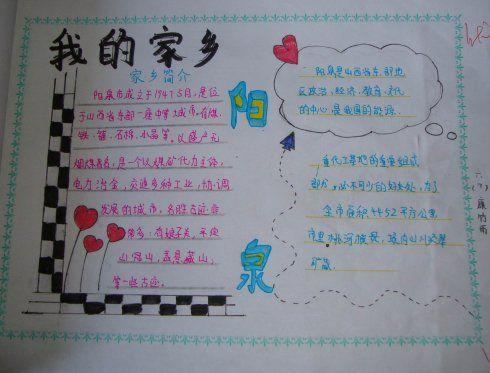 我的家乡
家乡简介
阳泉市成立于1947.5月,是位
于山西省东部一座中等城市。有煤、
铁、铝、石棉、水晶等。以盛产无
烟煤著名,是个以煤矿化力主体,
电力冶金,交通多种工业,协调
发展的城市,名胜古迹非
常多:有娘子关、平定
山冠山,盂县藏山,
等一些古迹。
阳
泉
阳泉是山西省东部地
区政治、经济、教育、文化
的中心是我国的能源、
重化工基地的重要组成
部分,必不可少的好去处,方
全市面积4452平方公里
市里桃河
矿藏
六